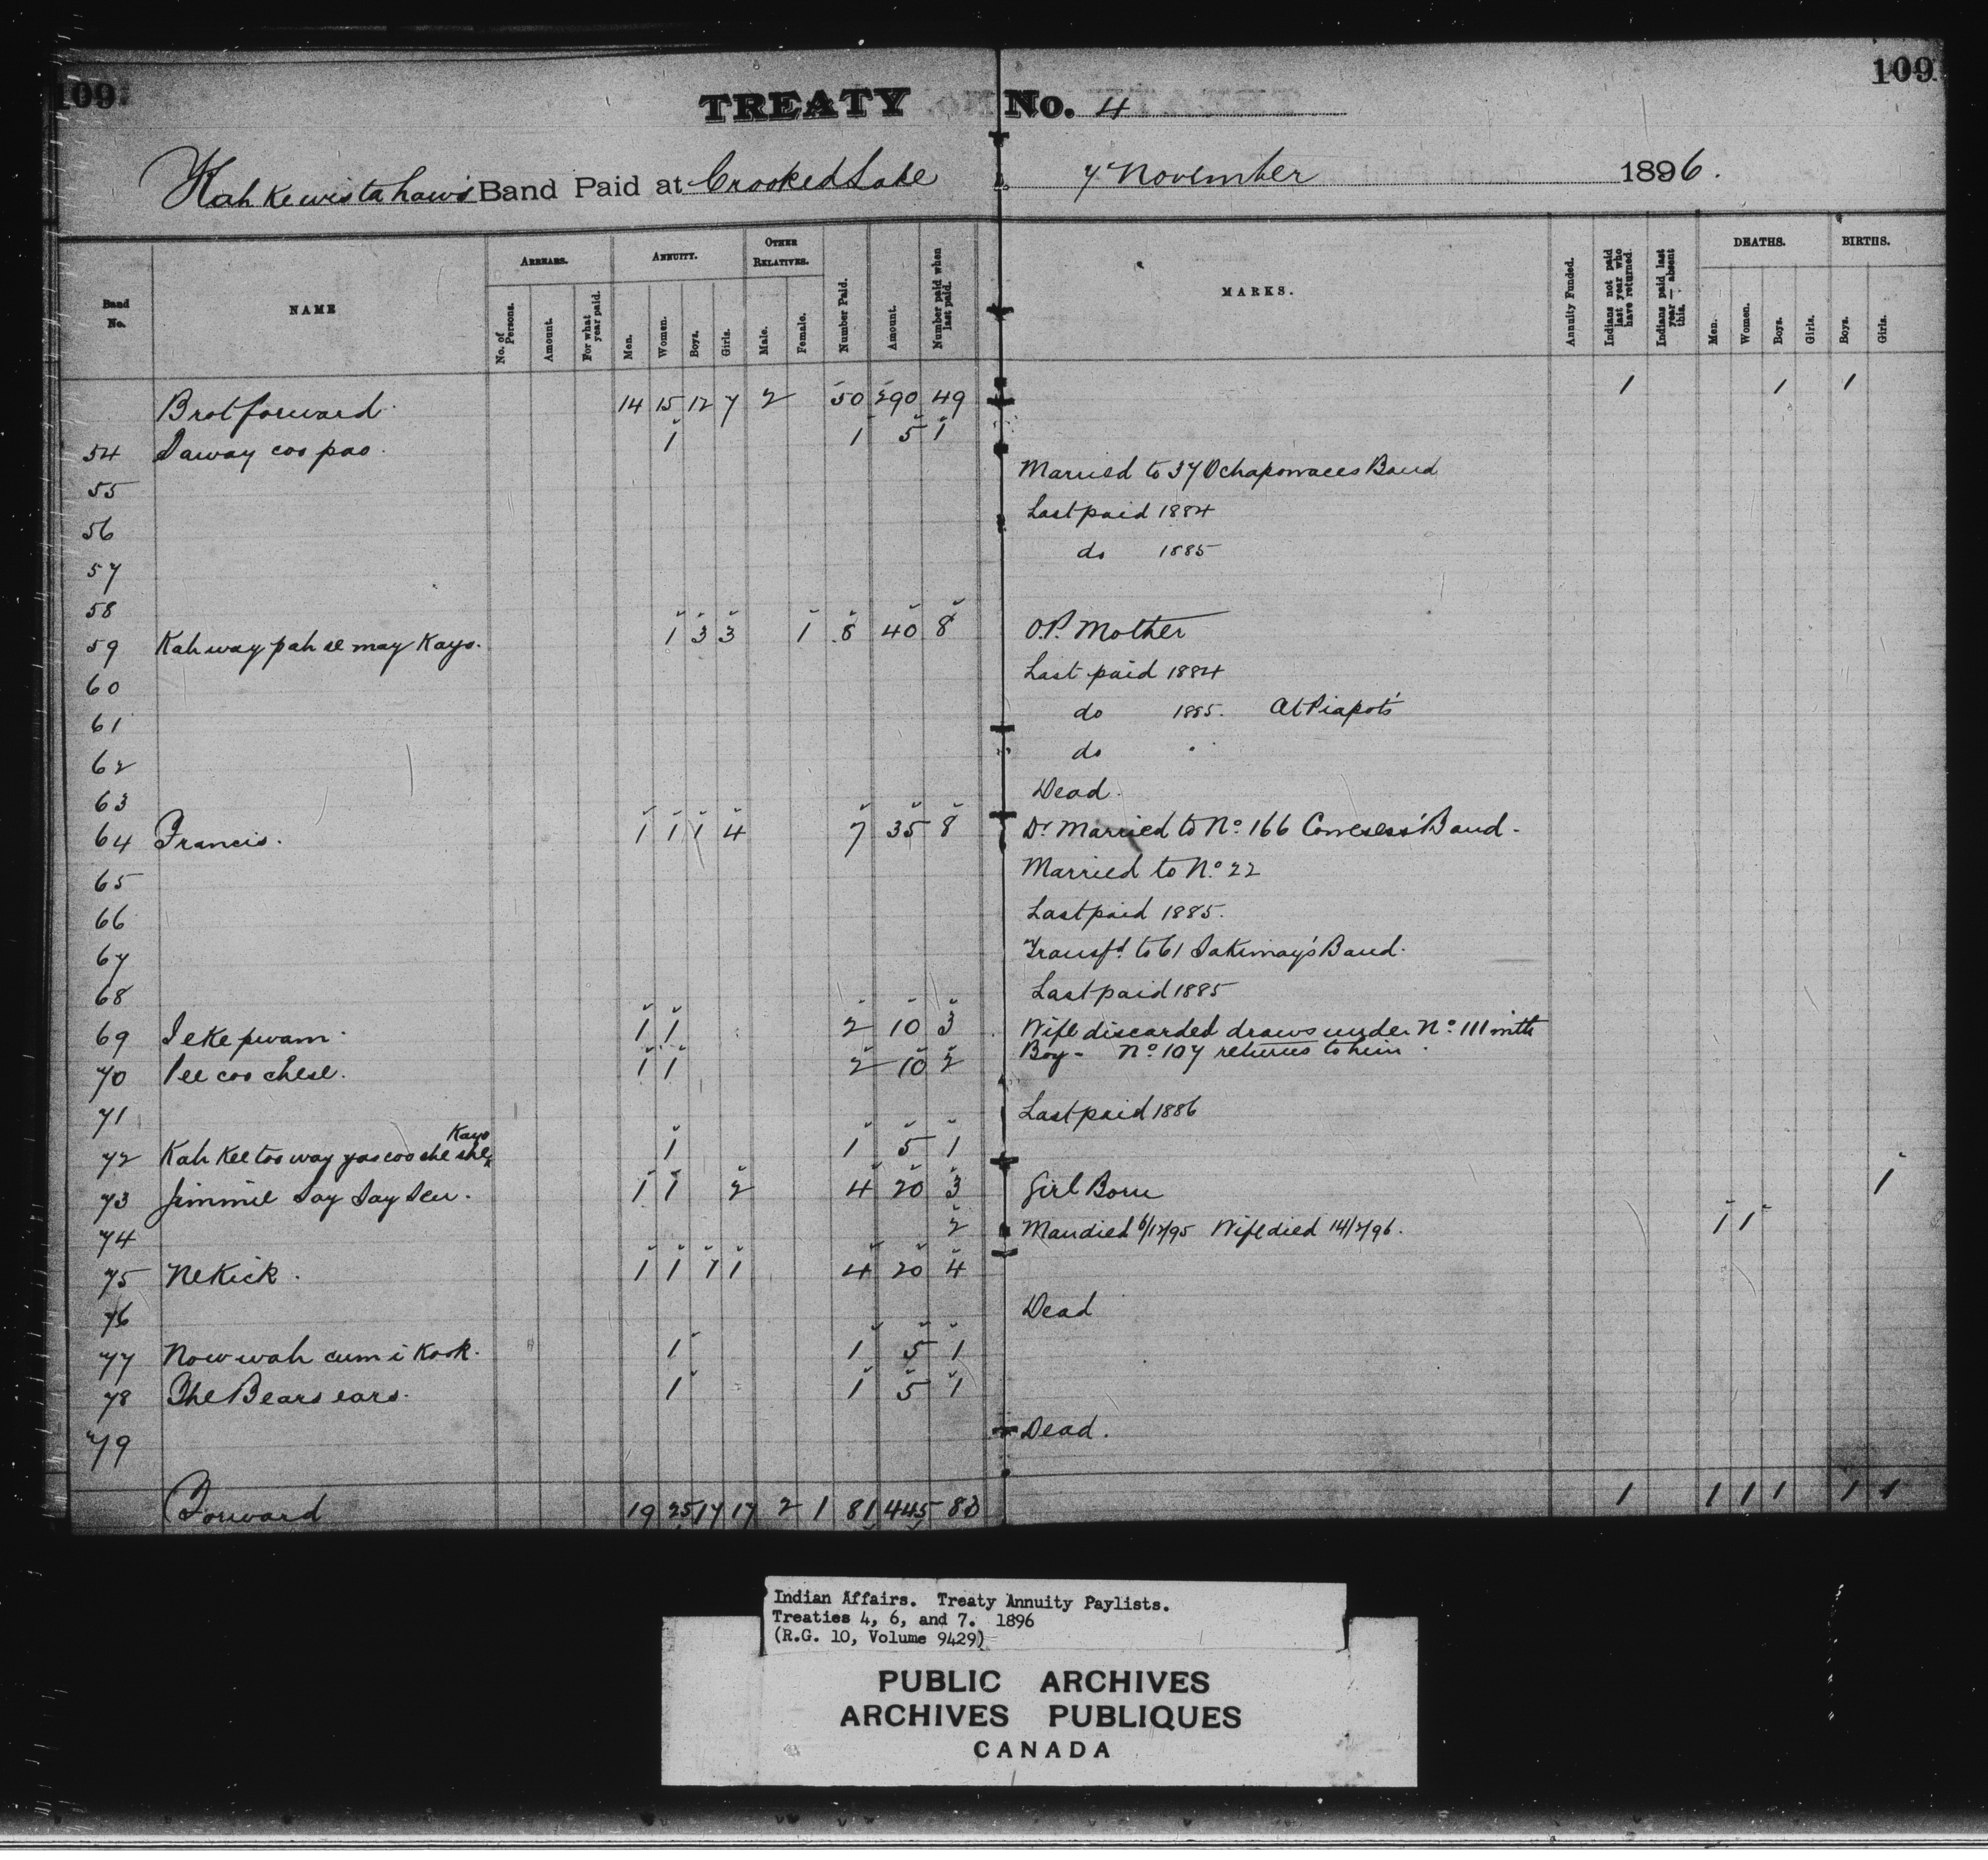 109 109
TREATY No. 4
Kah ke wis ta haw's Band Paid at Crooked Lake 7 November 1896.
Band No. NAME ARREARS. ANNUITY. OTHER RELATIVES. Number Paid. Amount. Number paid when last paid. MARKS. Annuity Funded. Indians not paid last year who have returned. Indians paid last year — absent this. DEATHS. BIRTHS.
No. of Persons. Amount. For what year paid. Men. Women. Boys. Girls. Male. Female. Men. Women. Boys. Girls. Boys. Girls.
Brot forward 14 15 12 7 2 50 290 49 1 1 1
54 Saway coo pao. 1 1 5 1
55 Married to 37 Ochapowaces Band
56 Last paid 1884
57 do 1885
58
59 Kah way pah se may Kayo. 1 3 3 1 8 40 8 O.P. Mother
60 Last paid 1884
61 do 1885. At Piapots
62 do "
63 Dead.
64 Francis. 1 1 1 4 7 35 8 Dr Married to No. 166 Cowesess' Band.
65 Married to No. 22
66 Last paid 1885.
67 Transfd. to 61 Sakimay's Band.
68 Last paid 1885
69 Ieke pwam. 1 1 2 10 3 Wife discarded draws under No. 111 with
Boy - No. 107 returns to him.
70 Pee coo chese. 1 1 2 10 2
71 Last paid 1886
72 Kah kee too way yas coo she she Kayo 1 1 5 1
73 Jimmie Say Say Sew. 1 1 2 4 20 3 Girl Born 1
74 2 Man died 6/12/95 Wife died 14/2/96. 1 1
75 Nekick. 1 1 1 1 4 20 4
76 Dead
77 Now wah cum i Kook. 1 1 5 1
78 The Bears ears. 1 1 5 1
79 Dead.
Forward 19 25 17 17 2 1 81 445 83 1 1 1 1 1 1
Indian Affairs. Treaty Annuity Paylists.
Treaties 4, 6, and 7. 1896
(R.G. 10, Volume 9429)
PUBLIC ARCHIVES
ARCHIVES PUBLIQUES
CANADA